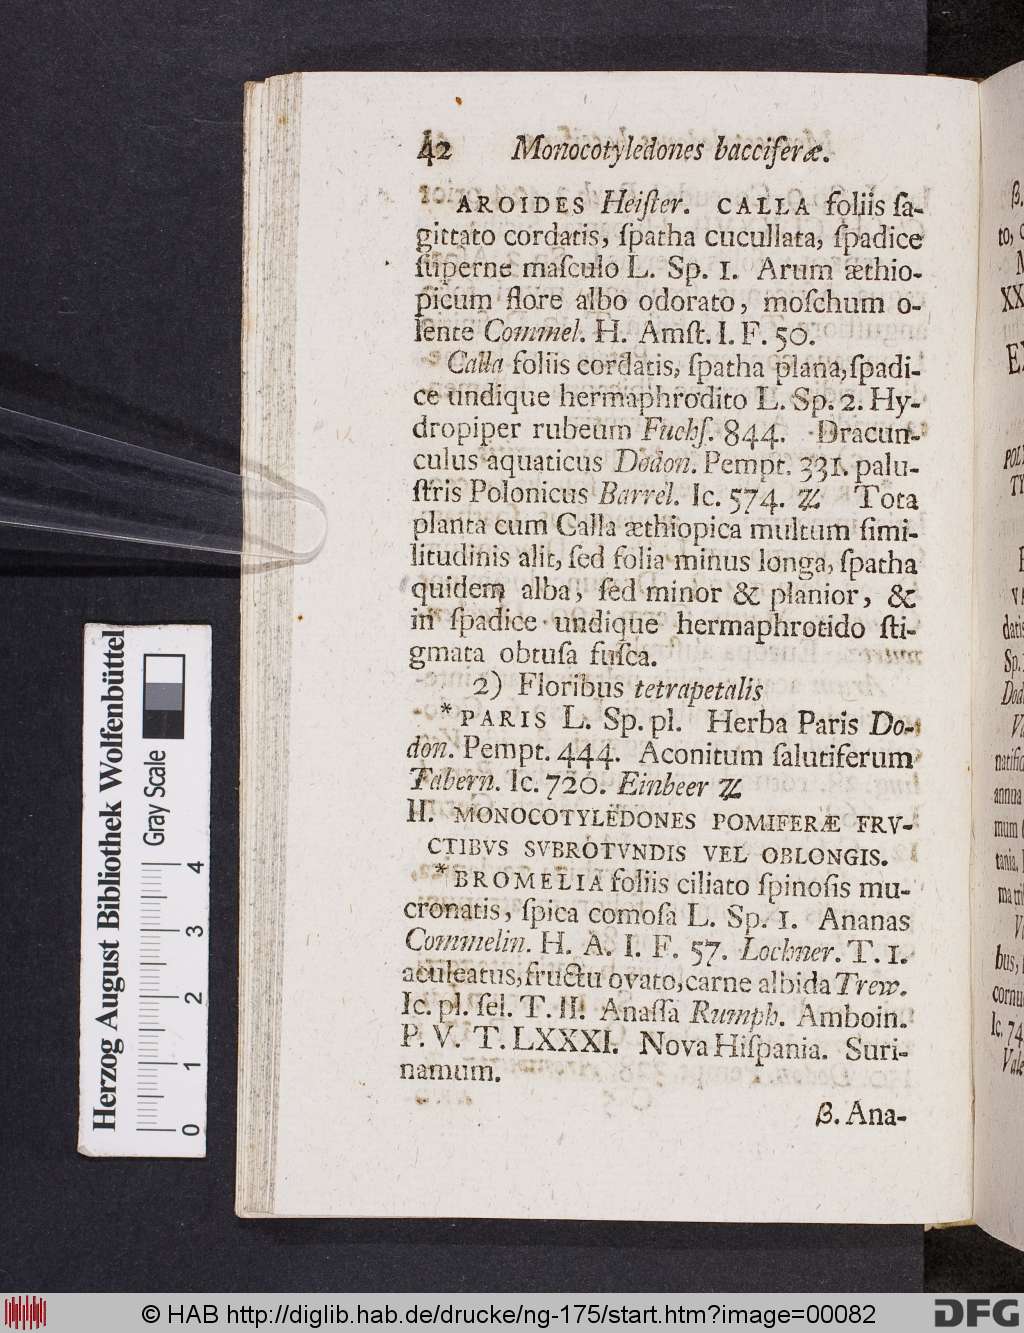 42 Monocotyledones bacciferæ.
AROIDES Heiſter. CALLA foliis ſa-
gittato cordatis, ſpatha cucullata, ſpadice
ſuperne maſculo L. Sp. 1. Arum æthio-
picum flore albo odorato, moſchum o-
lente Commel. H. Amſt. I. F. 50.
Calla foliis cordatis, ſpatha plana, ſpadi-
ce undique hermaphrodito L. Sp. 2. Hy-
dropiper rubeum Fuchſ. 844. Dracun-
culus aquaticus Dodon. Pempt. 331. palu-
ſtris Polonicus Barrel. Ic. 574. ♃ Tota
planta cum Calla æthiopica multum ſimi-
litudinis alit, ſed folia minus longa, ſpatha
quidem alba, ſed minor & planior, &
in ſpadice undique hermaphrotido ſti-
gmata obtuſa fuſca.
2) Floribus tetrapetalis
* PARIS L. Sp. pl. Herba Paris Do-
don. Pempt. 444. Aconitum ſalutiferum
Tabern. Ic. 720. Einbeer ♃
II. MONOCOTYLEDONES POMIFERÆ FRV-
CTIBVS SVBROTVNDIS VEL OBLONGIS.
* BROMELIA foliis ciliato ſpinoſis mu-
cronatis, ſpica comoſa L. Sp. 1. Ananas
Commelin. H. A. I. F. 57. Lochner. T. 1.
aculeatus, fructu ovato, carne albida Trew.
Ic. pl. ſel. T. II. Anaſſa Rumph. Amboin.
P. V. T. LXXXI. Nova Hiſpania. Suri-
namum.
β. Ana-
Herzog August Bibliothek Wolfenbüttel
Gray Scale
0 1 2 3 4
© HAB http://diglib.hab.de/drucke/ng-175/start.htm?image=00082
DFG